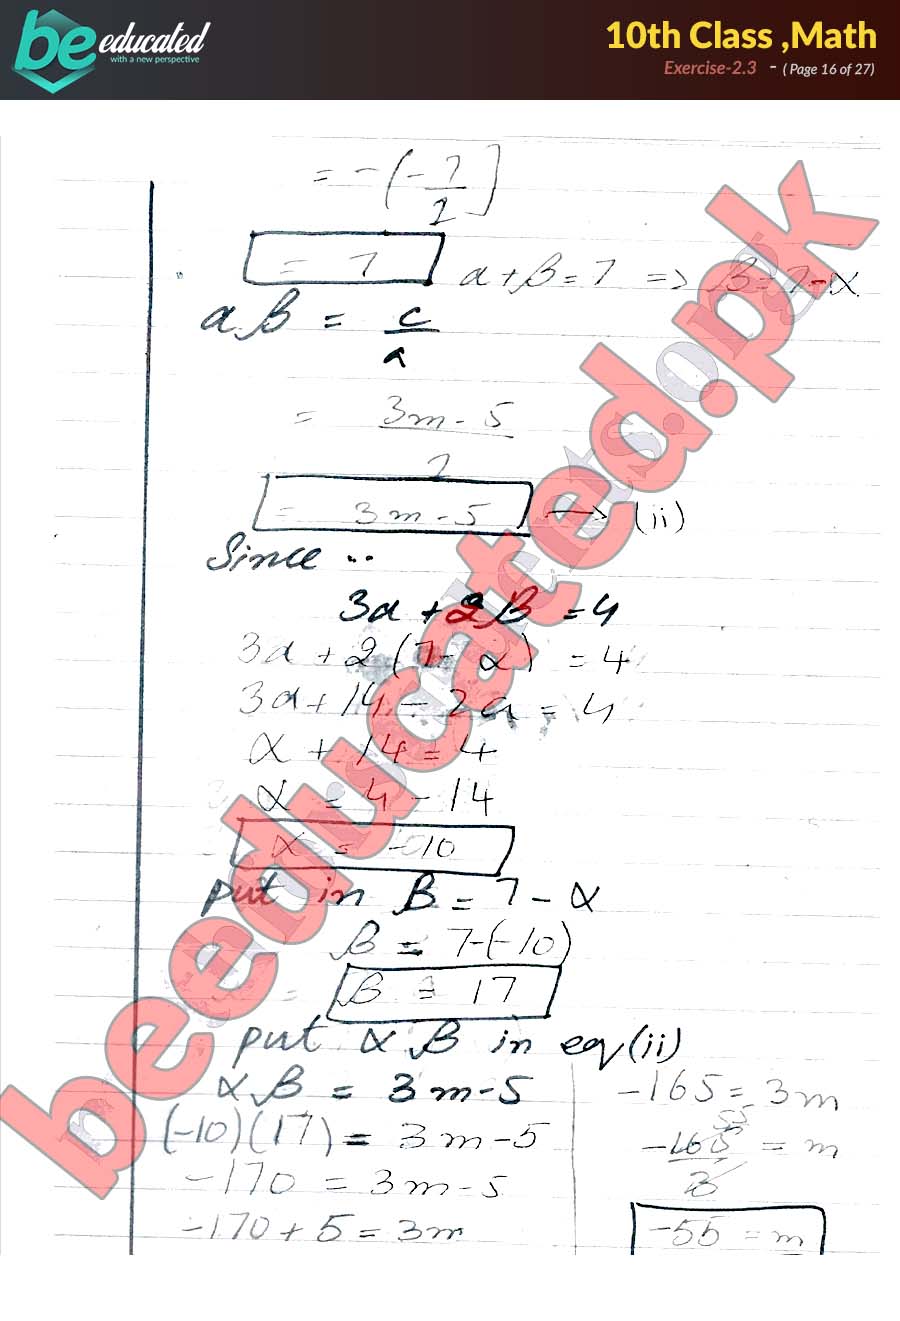 be educated
with a new perspective
10th Class ,Math
Exercise-2.3 - ( Page 16 of 27)
= -(-7/2]
= 7
α+β=7 => β=7-α
αβ = c/a
= 3m-5/2
= 3m-5 → (ii)
Since ..
3α+2β=4
3α+2(7-α)=4
3α+14-2α=4
α+14=4
α=4-14
α = -10
put in β=7-α
β=7-(-10)
β = 17
put α β in eq(ii)
αβ = 3m-5
(-10)(17)=3m-5
-170=3m-5
-170+5=3m
-165=3m
55
-165/3=m
-55=m
beeducated.pk